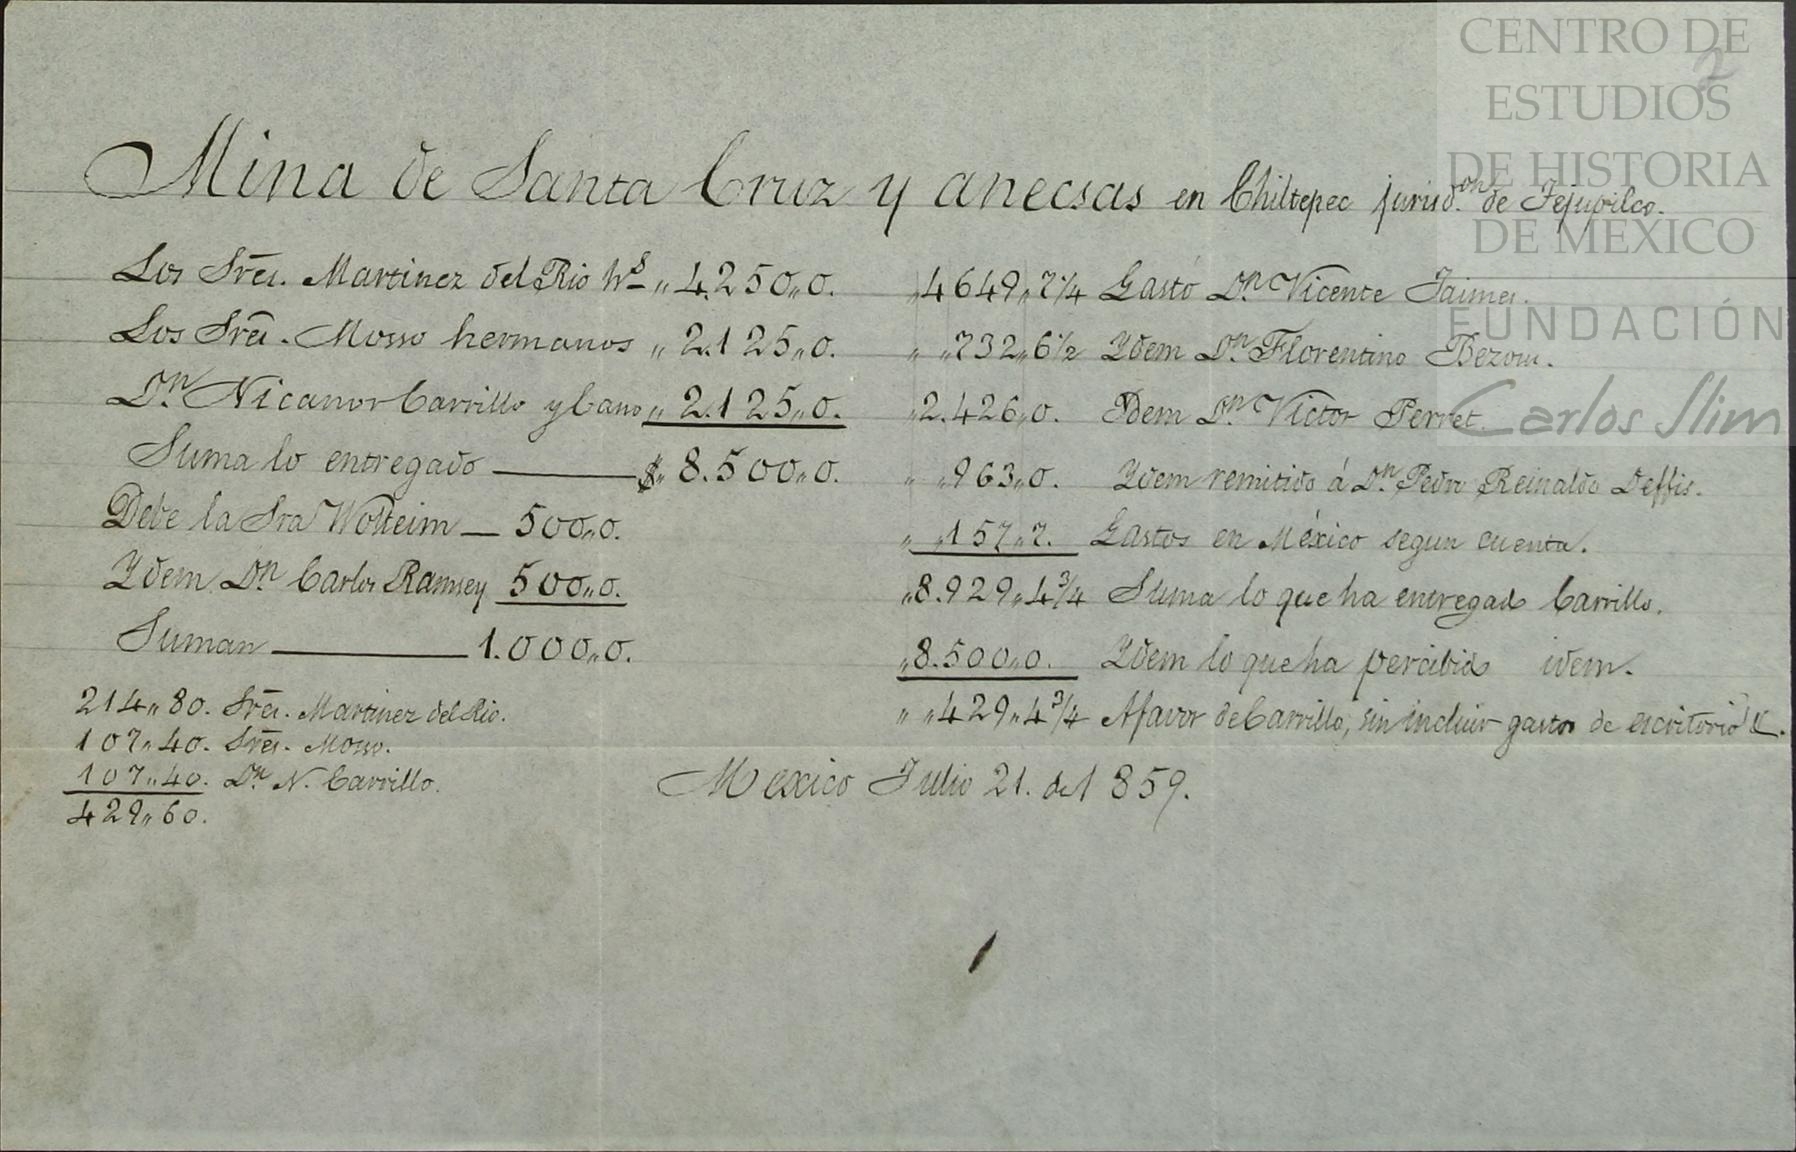 CENTRO DE
ESTUDIOS
DE HISTORIA
DE MÉXICO
FUNDACIÓN
Carlos Slim
2
Mina de Santa Cruz y anecsas en Chiltepec jurisd.on de Tejupilco.
Los Sres. Martinez del Rio hs „ 4.250„0.
Los Sres. Mosso hermanos „ 2.125„0.
Dn. Nicanor Carrillo y Cano „ 2.125„0.
Suma lo entregado — $„ 8.500„0.
Debe la Sra Wolleim — 500„0.
Ydem Dn. Carlos Ramsey 500„0.
Suman — 1.000„0.
214„80. Sres. Martinez del Rio.
107„40. Sres. Mosso.
107„40. Dn. N. Carrillo.
429„60.
„4649„7 1/4 Gastó Dn. Vicente Jaimes.
„ „732„6 1/2 Ydem Dn. Florentino
„2.426„0. Ydem Dn. Victor Perret.
„ „963„0. Ydem remitido á Dn. Pedro Reinaldo Deffis.
„ „157„7. Gastos en México segun cuenta.
„8.929„4 3/4 Suma lo que ha entregado Carrillo.
„8.500„0. Ydem lo que ha percibido idem.
„ „429„4 3/4 A favor de Carrillo, sin incluir gastos de escritorio &.
Mexico Julio 21. de 1859.